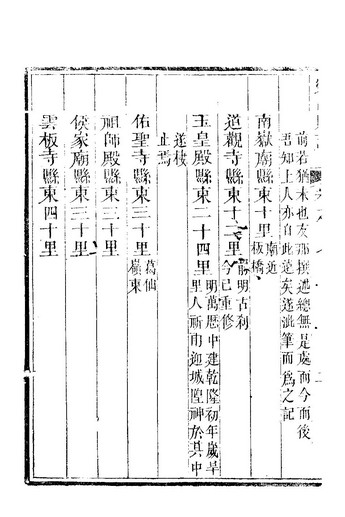 前若猶未也友那撰述總無是處而今而後
吾知上人亦自此遠矣遂泚筆而爲之記
南嶽廟縣東十里廟近板橋
道觀寺縣東十二里前明古刹今已重修
玉皇殿縣東二十四里明萬曆中建乾隆初年歲旱里人祈雨迎城隍神於其中
遂棲止焉
佑聖寺縣東三十里葛仙嶺東
祖師殿縣東三十里
侯家廟縣東三十里
雲板寺縣東四十里